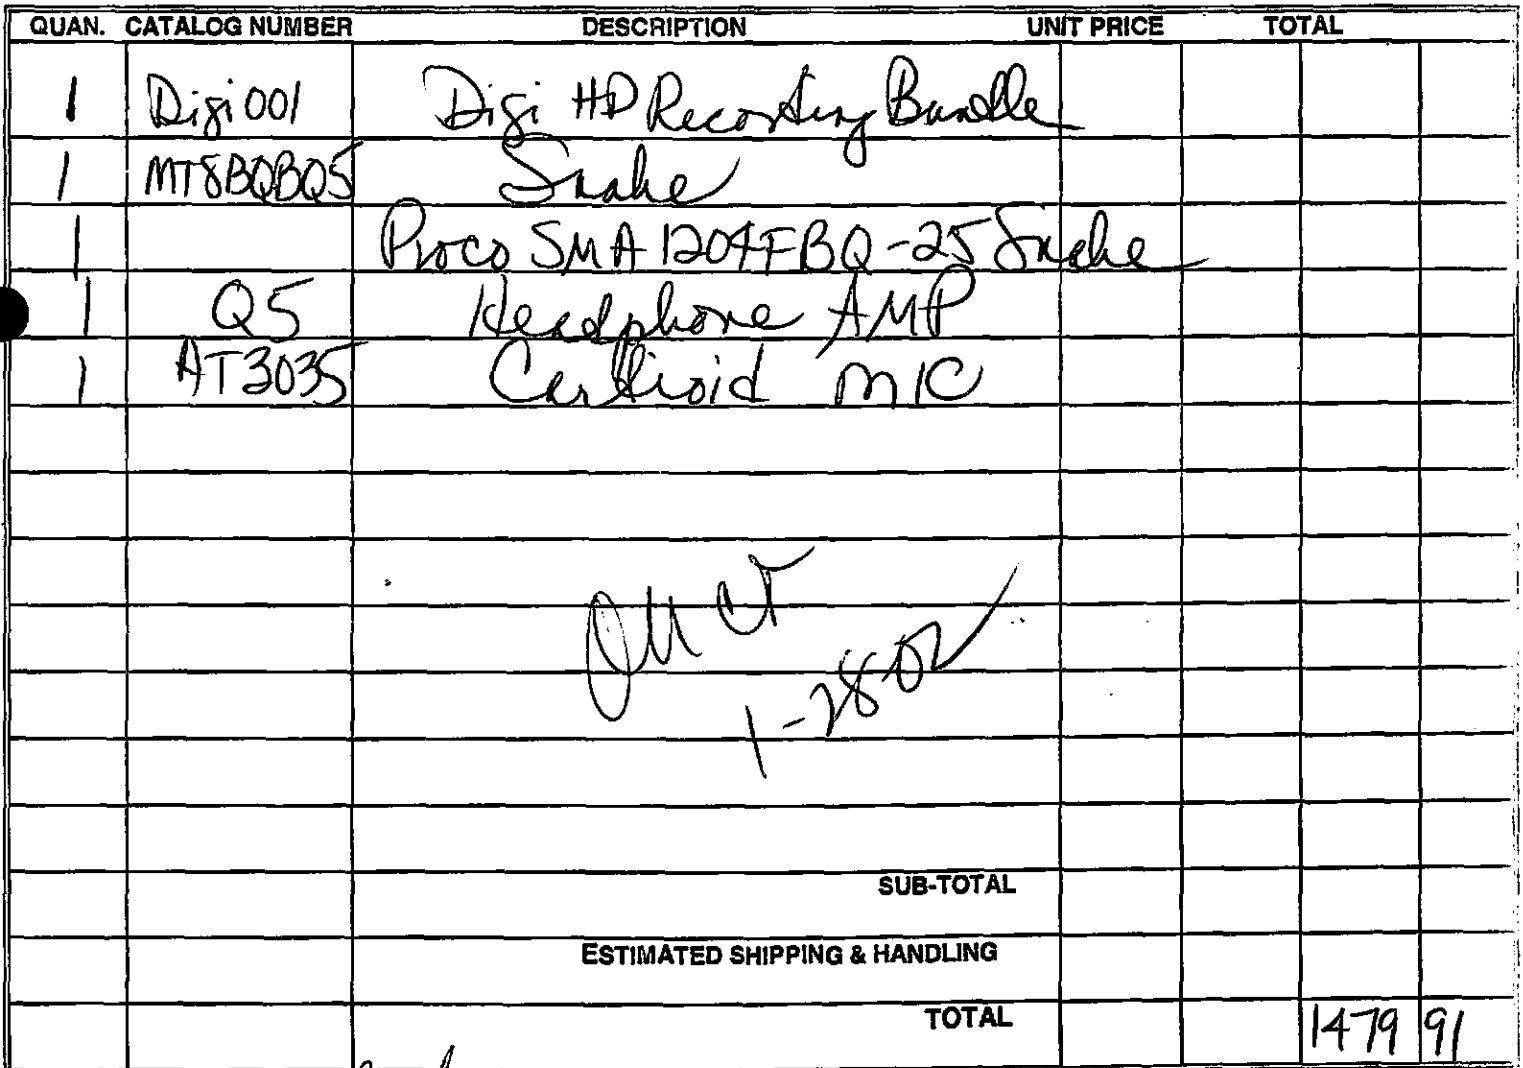 QUAN. CATALOG NUMBER DESCRIPTION UNIT PRICE TOTAL
1 Digi001 Digi HD Recording Bundle
1 MT8BQBQ5 Snake
1 Proco SMA1204FBQ-25 Snake
1 Q5 Headphone AMP
1 AT3035 Cardioid MIC
1-28-02
SUB-TOTAL
ESTIMATED SHIPPING & HANDLING
TOTAL 1479 91